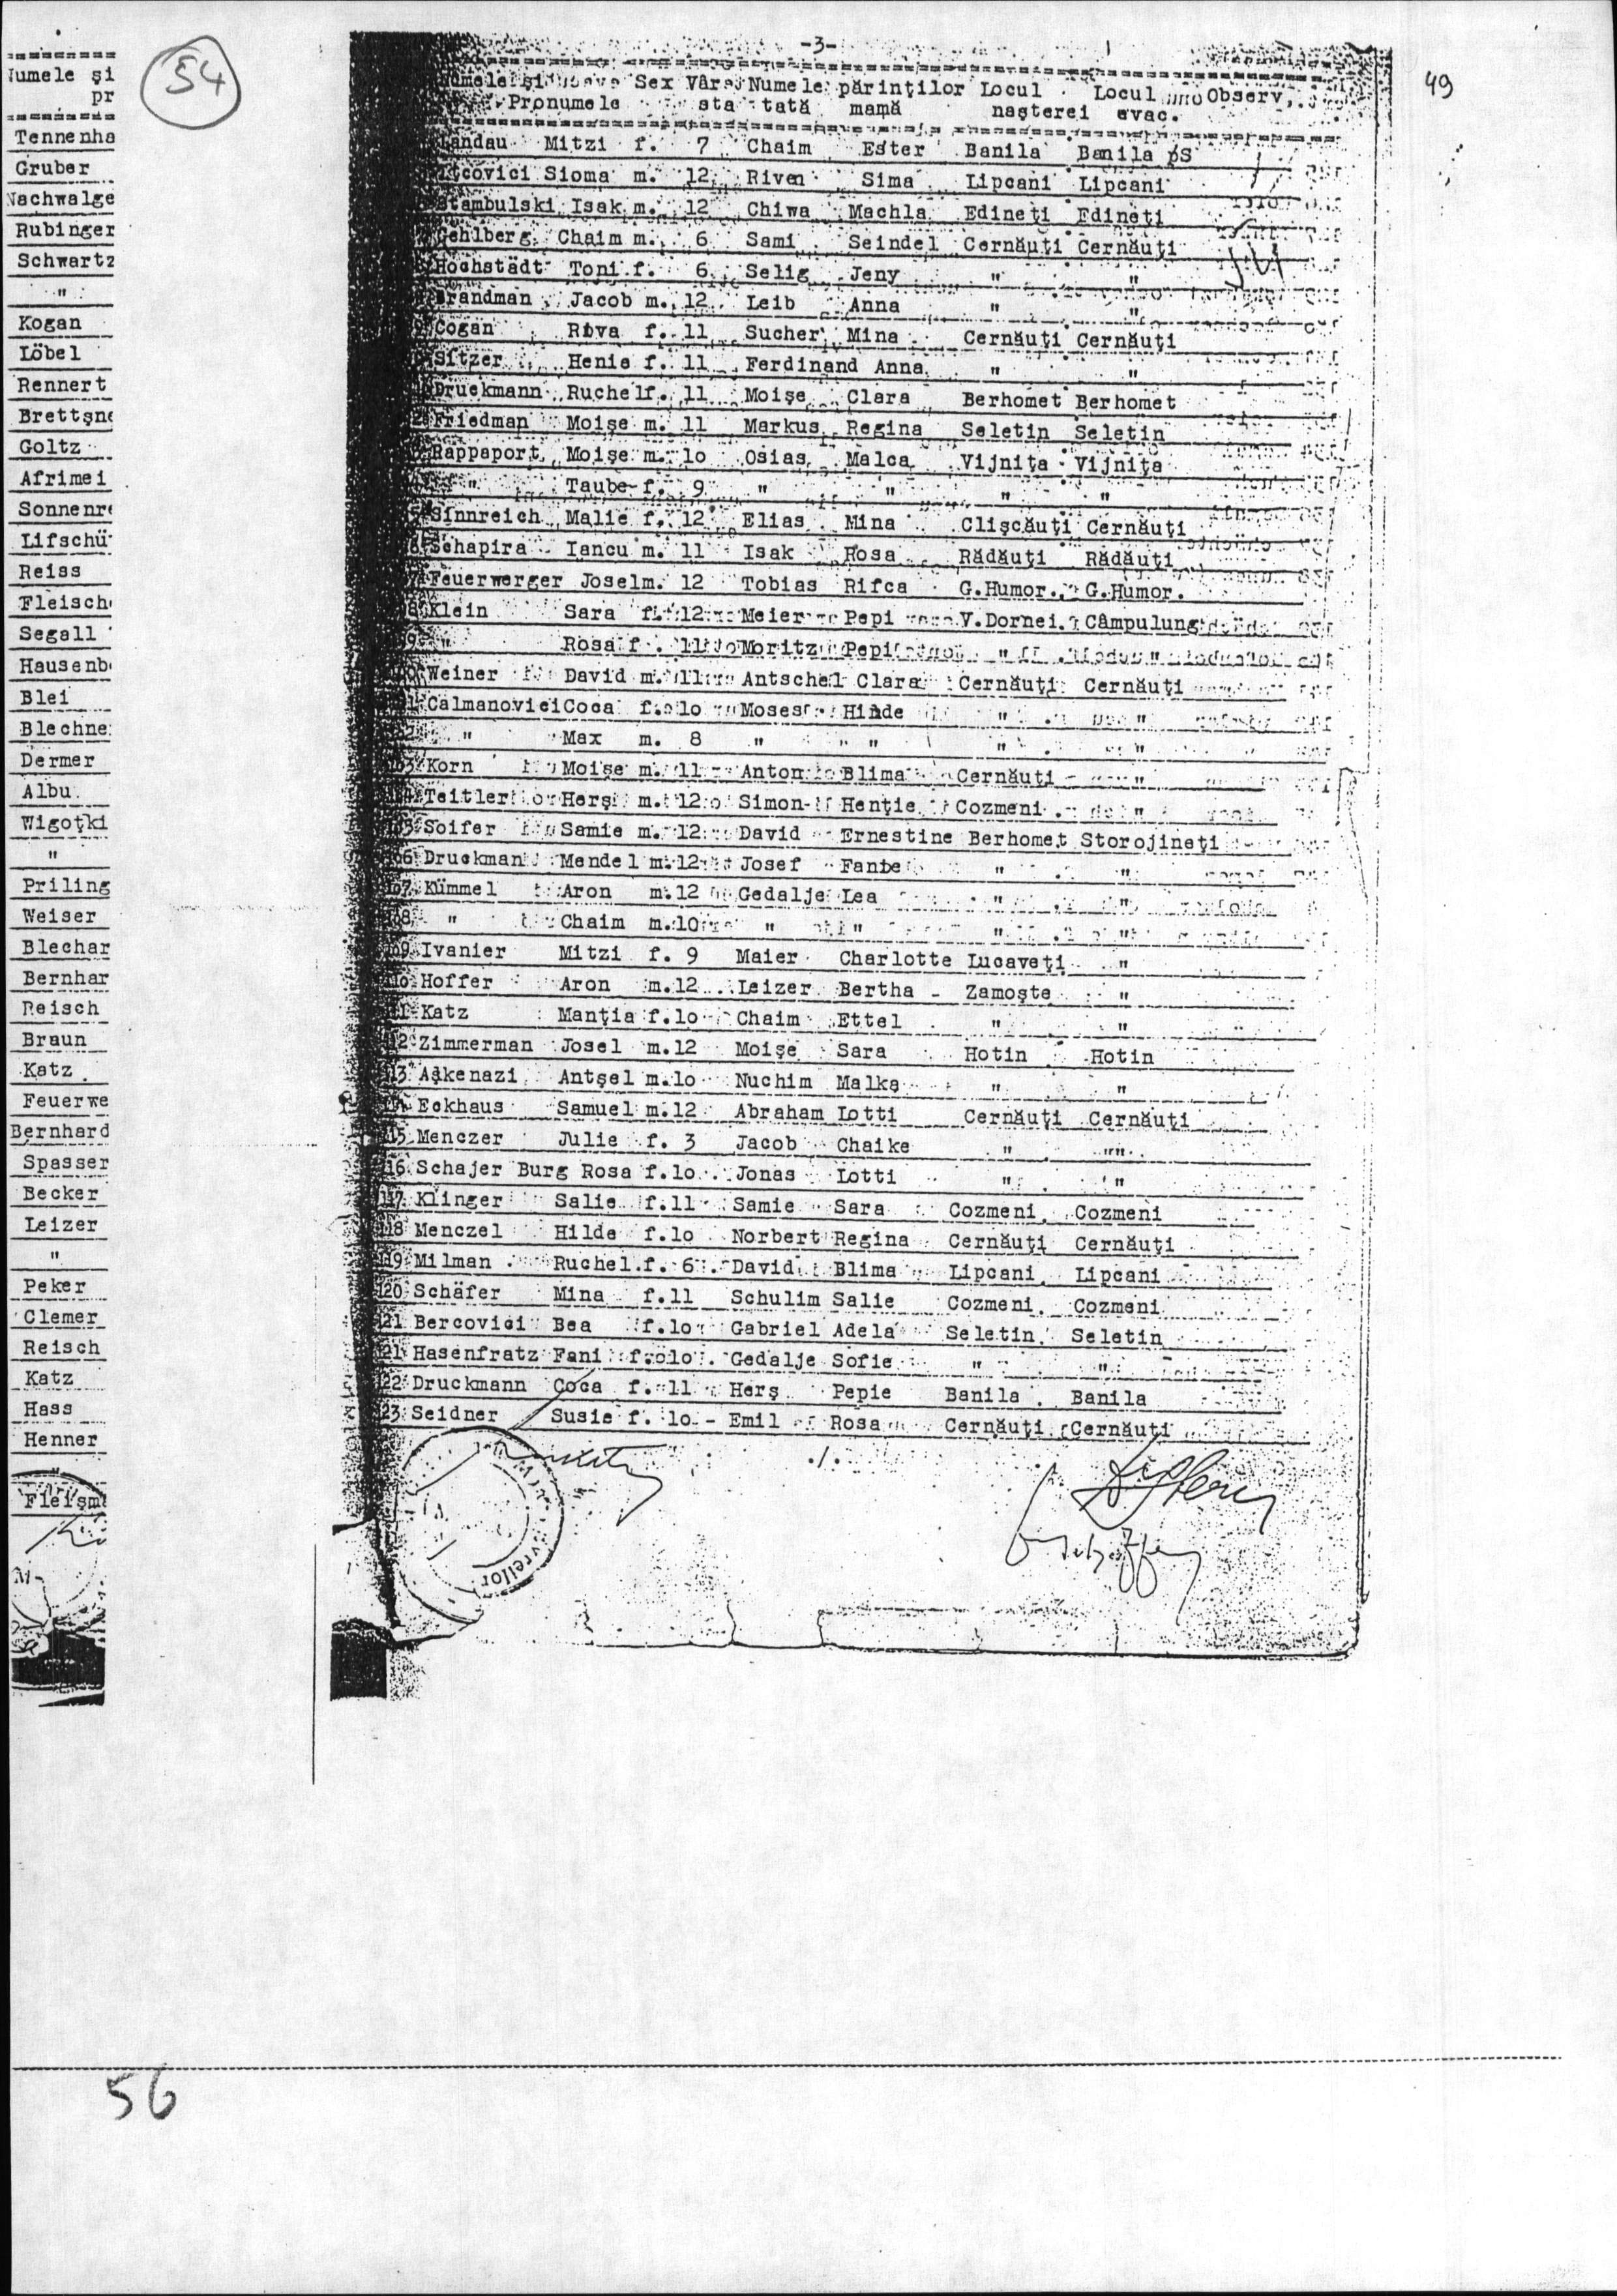 54
49
Numele și
pr
Tennenha
Gruber
Nachwalge
Rubinger
Schwartz
"
Kogan
Löbel
Rennert
Brettşne
Goltz
Afrimei
Sonnenre
Lifschü
Reiss
Fleisch
Segall
Hausenb
Blei
Blechne
Dermer
Albu
Wigoţki
"
Priling
Weiser
Blechar
Bernhar
Reisch
Braun
Katz
Feuerwe
Bernhard
Spasser
Becker
Leizer
"
Peker
Clemer
Reisch
Katz
Hass
Henner
"
Fleişma
-3-
Numele și Sex Vârs Numele părinţilor Locul Locul Observ.
Pronumele sta tată mamă naşterei evac.
Landau Mitzi f. 7 Chaim Ester Banila Banila pS
Itcovici Sioma m. 12 Riven Sima Lipcani Lipcani
Stambulski Isak m. 12 Chiwa Machla Edineţi Edineţi
Gehlberg Chaim m. 6 Sami Seindel Cernăuţi Cernăuţi
Hochstädt Toni f. 6 Selig Jeny " "
Brandman Jacob m. 12 Leib Anna " "
Cogan Riva f. 11 Sucher Mina Cernăuţi Cernăuţi
Sitzer Henie f. 11 Ferdinand Anna " "
Druckmann Ruchel f. 11 Moişe Clara Berhomet Berhomet
Friedman Moişe m. 11 Markus Regina Seletin Seletin
Rappaport Moişe m. 1o Osias Malca Vijniţa Vijniţa
" Taube f. 9 " " " "
Sinnreich Malie f. 12 Elias Mina Clişcăuţi Cernăuţi
Schapira Iancu m. 11 Isak Rosa Rădăuţi Rădăuţi
Feuerwerger Josel m. 12 Tobias Rifca G.Humor. G.Humor.
Klein Sara f. 12 Meier Pepi V.Dornei. Câmpulung
" Rosa f. 11 Moritz Pepi " "
Weiner David m. 11 Antschel Clara Cernăuţi Cernăuţi
Calmanovici Coca f. 1o Moses Hinde " "
" Max m. 8 " " " "
103 Korn Moişe m. 11 Anton Blima Cernăuţi "
104 Teitler Herş m. 12 Simon Henţie Cozmeni "
105 Soifer Samie m. 12 David Ernestine Berhomet Storojineţi
106 Druckman Mendel m. 12 Josef Fanie " "
107 Kümmel Aron m. 12 Gedalje Lea " "
108 " Chaim m. 10 " " " "
109 Ivanier Mitzi f. 9 Maier Charlotte Lucaveţi "
110 Hoffer Aron m. 12 Leizer Bertha - Zamoşte "
111 Katz Manţia f. 1o Chaim Ettel " "
112 Zimmerman Josel m. 12 Moişe Sara Hotin Hotin
113 Aşkenazi Antşel m. 1o Nuchim Malka " "
114 Eckhaus Samuel m. 12 Abraham Lotti Cernăuţi Cernăuţi
115 Menczer Julie f. 3 Jacob Chaike " "
116 Schajer Burg Rosa f. 1o Jonas Lotti " "
117 Klinger Salie f. 11 Samie Sara Cozmeni Cozmeni
118 Menczel Hilde f. 1o Norbert Regina Cernăuţi Cernăuţi
119 Milman Ruchel f. 6 David Blima Lipcani Lipcani
120 Schäfer Mina f. 11 Schulim Salie Cozmeni Cozmeni
121 Bercovici Bea f. 1o Gabriel Adela Seletin Seletin
121 Hasenfratz Fani f. 1o Gedalje Sofie " "
122 Druckmann Coca f. 11 Herş Pepie Banila Banila
123 Seidner Susie f. 1o - Emil Rosa Cernăuţi Cernăuţi
./.
Evreilor
56